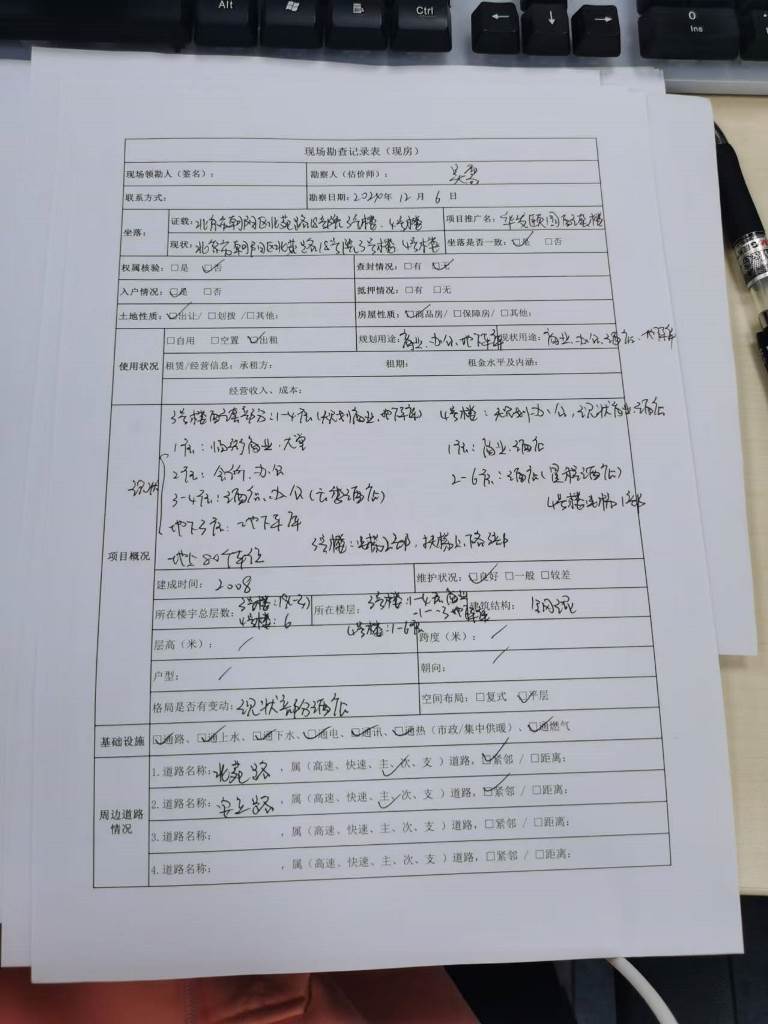 Alt
Ctrl
0
Ins
现场勘查记录表（现房）
现场领勘人（签名）： 勘察人（估价师）：
联系方式： 勘察日期：2020年 12 月 6 日
坐落： 证载：北京市朝阳区北苑路18号院3号楼、4号楼 项目推广名：华贸颐园配套楼
现状：北京市朝阳区北苑路18号院3号楼、4号楼 坐落是否一致：☑是 □否
权属核验：□是 ☑否 查封情况：□有 ☑无
入户情况：☑是 □否 抵押情况：□有 □无
土地性质：☑出让/ □划拨 /□其他： 房屋性质：☑商品房/ □保障房/ □其他：
使用状况 □自用 □空置 ☑出租 规划用途：商业、办公、地下车库 现状用途：商业、办公、酒店、地下车库
租赁/经营信息：承租方： 租期： 租金水平及内涵：
经营收入、成本：
项目概况
3号楼配套部分：1-4层（规划商业、地下车库） 4号楼：规划办公，现状商业酒店
现状
1层：临街商业、大堂 1层：商业、酒店
2层：会所、办公 2-6层：酒店（星程酒店）
3-4层：酒店、办公（云垫酒店） 4号楼电梯1部
地下3层：地下车库
地上80个车位 3号楼：电梯2部，扶梯上、下各1部
建成时间：2008 维护状况：☑良好 □一般 □较差
所在楼宇总层数：3号楼：19(-3) 4号楼：6 所在楼层：3号楼：1-4层商业 -1--3地下车库 4号楼：1-6层 建筑结构：钢混
层高（米）：/ 跨度（米）：/
户型：/ 朝向：/
格局是否有变动：现状部分酒店 空间布局：□复式 ☑平层
基础设施 ☑通路、☑通上水、☑通下水、☑通电、☑通讯、☑通热（市政/集中供暖）、☑通燃气
周边道路情况
1.道路名称：北苑路，属（高速、快速、主、次、支 ）道路，☑紧邻 / □距离：
2.道路名称：安立路，属（高速、快速、主、次、支 ）道路，☑紧邻 / □距离：
3.道路名称： ，属（高速、快速、主、次、支 ）道路，□紧邻 / □距离：
4.道路名称： ，属（高速、快速、主、次、支 ）道路，□紧邻 / □距离：